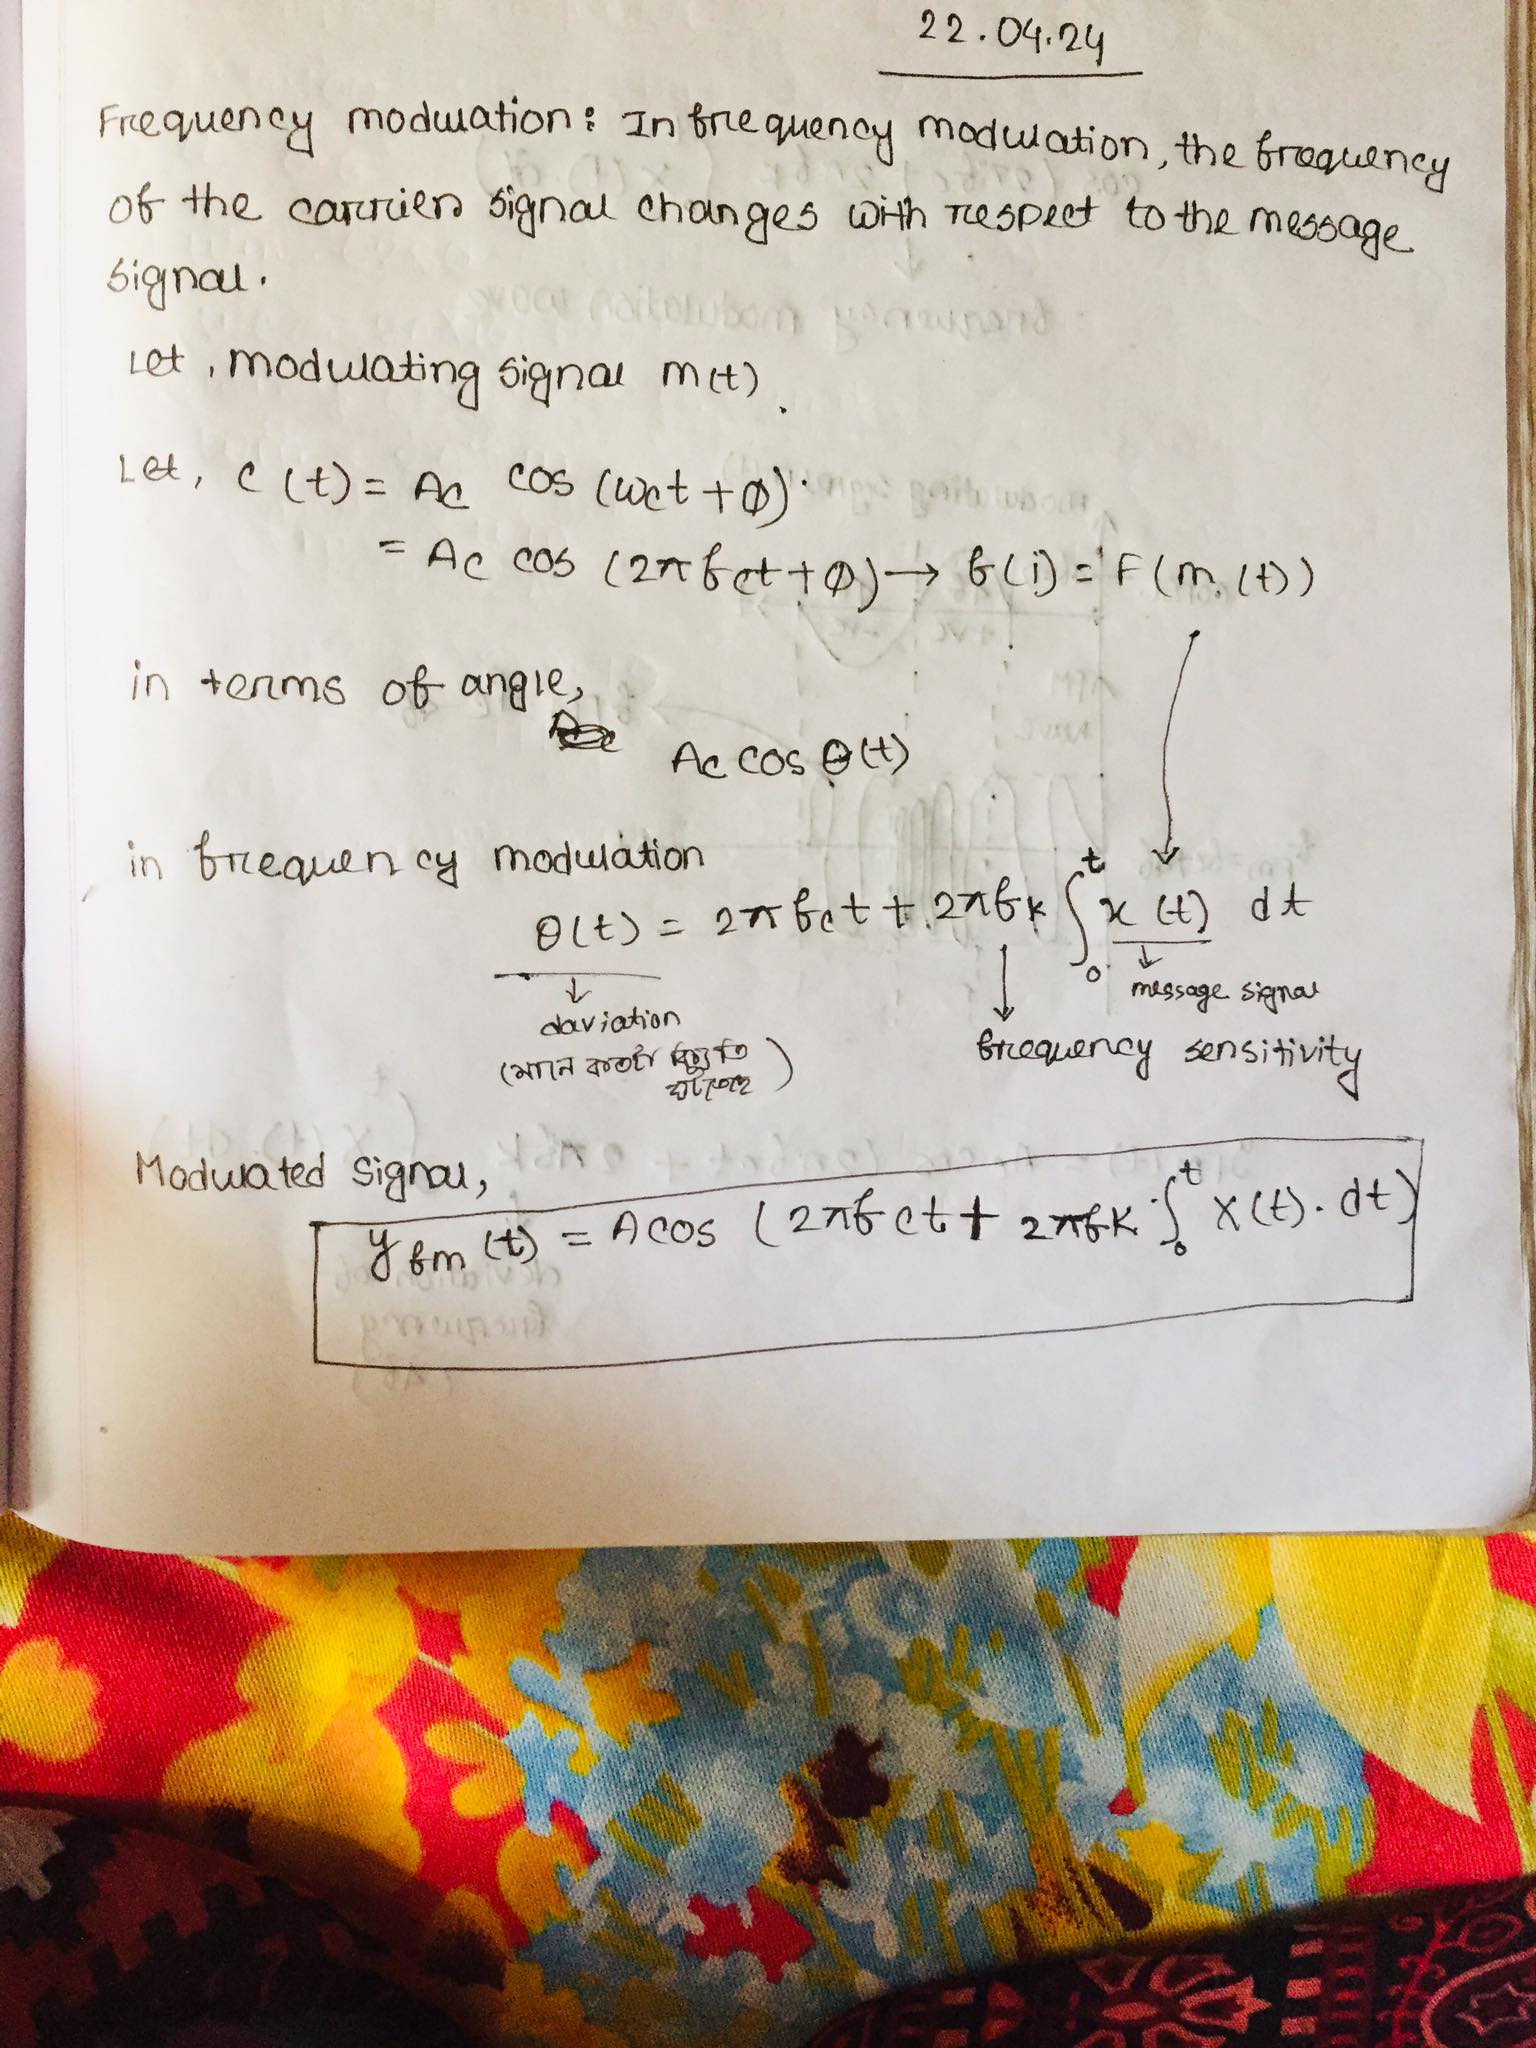 22.04.24
Frequency modulation: In frequency modulation, the frequency
of the carrier signal changes with respect to the message
signal.
Let, modulating signal m(t).
Let, c(t) = Ac cos (wct + Ø)
= Ac cos (2πfct + Ø) → f(i) = F(m(t))
in terms of angle,
Ac cos θ(t)
in frequency modulation
θ(t) = 2πfct + 2πfk ∫₀ᵗ x(t) dt
↓ message signal
↓ daviation
(মানে কতটা বিচ্যুতি
ঘটেছে)
↓ frequency sensitivity
Modulated signal,
yfm(t) = Acos (2πfct + 2πfk ∫₀ᵗ x(t). dt)